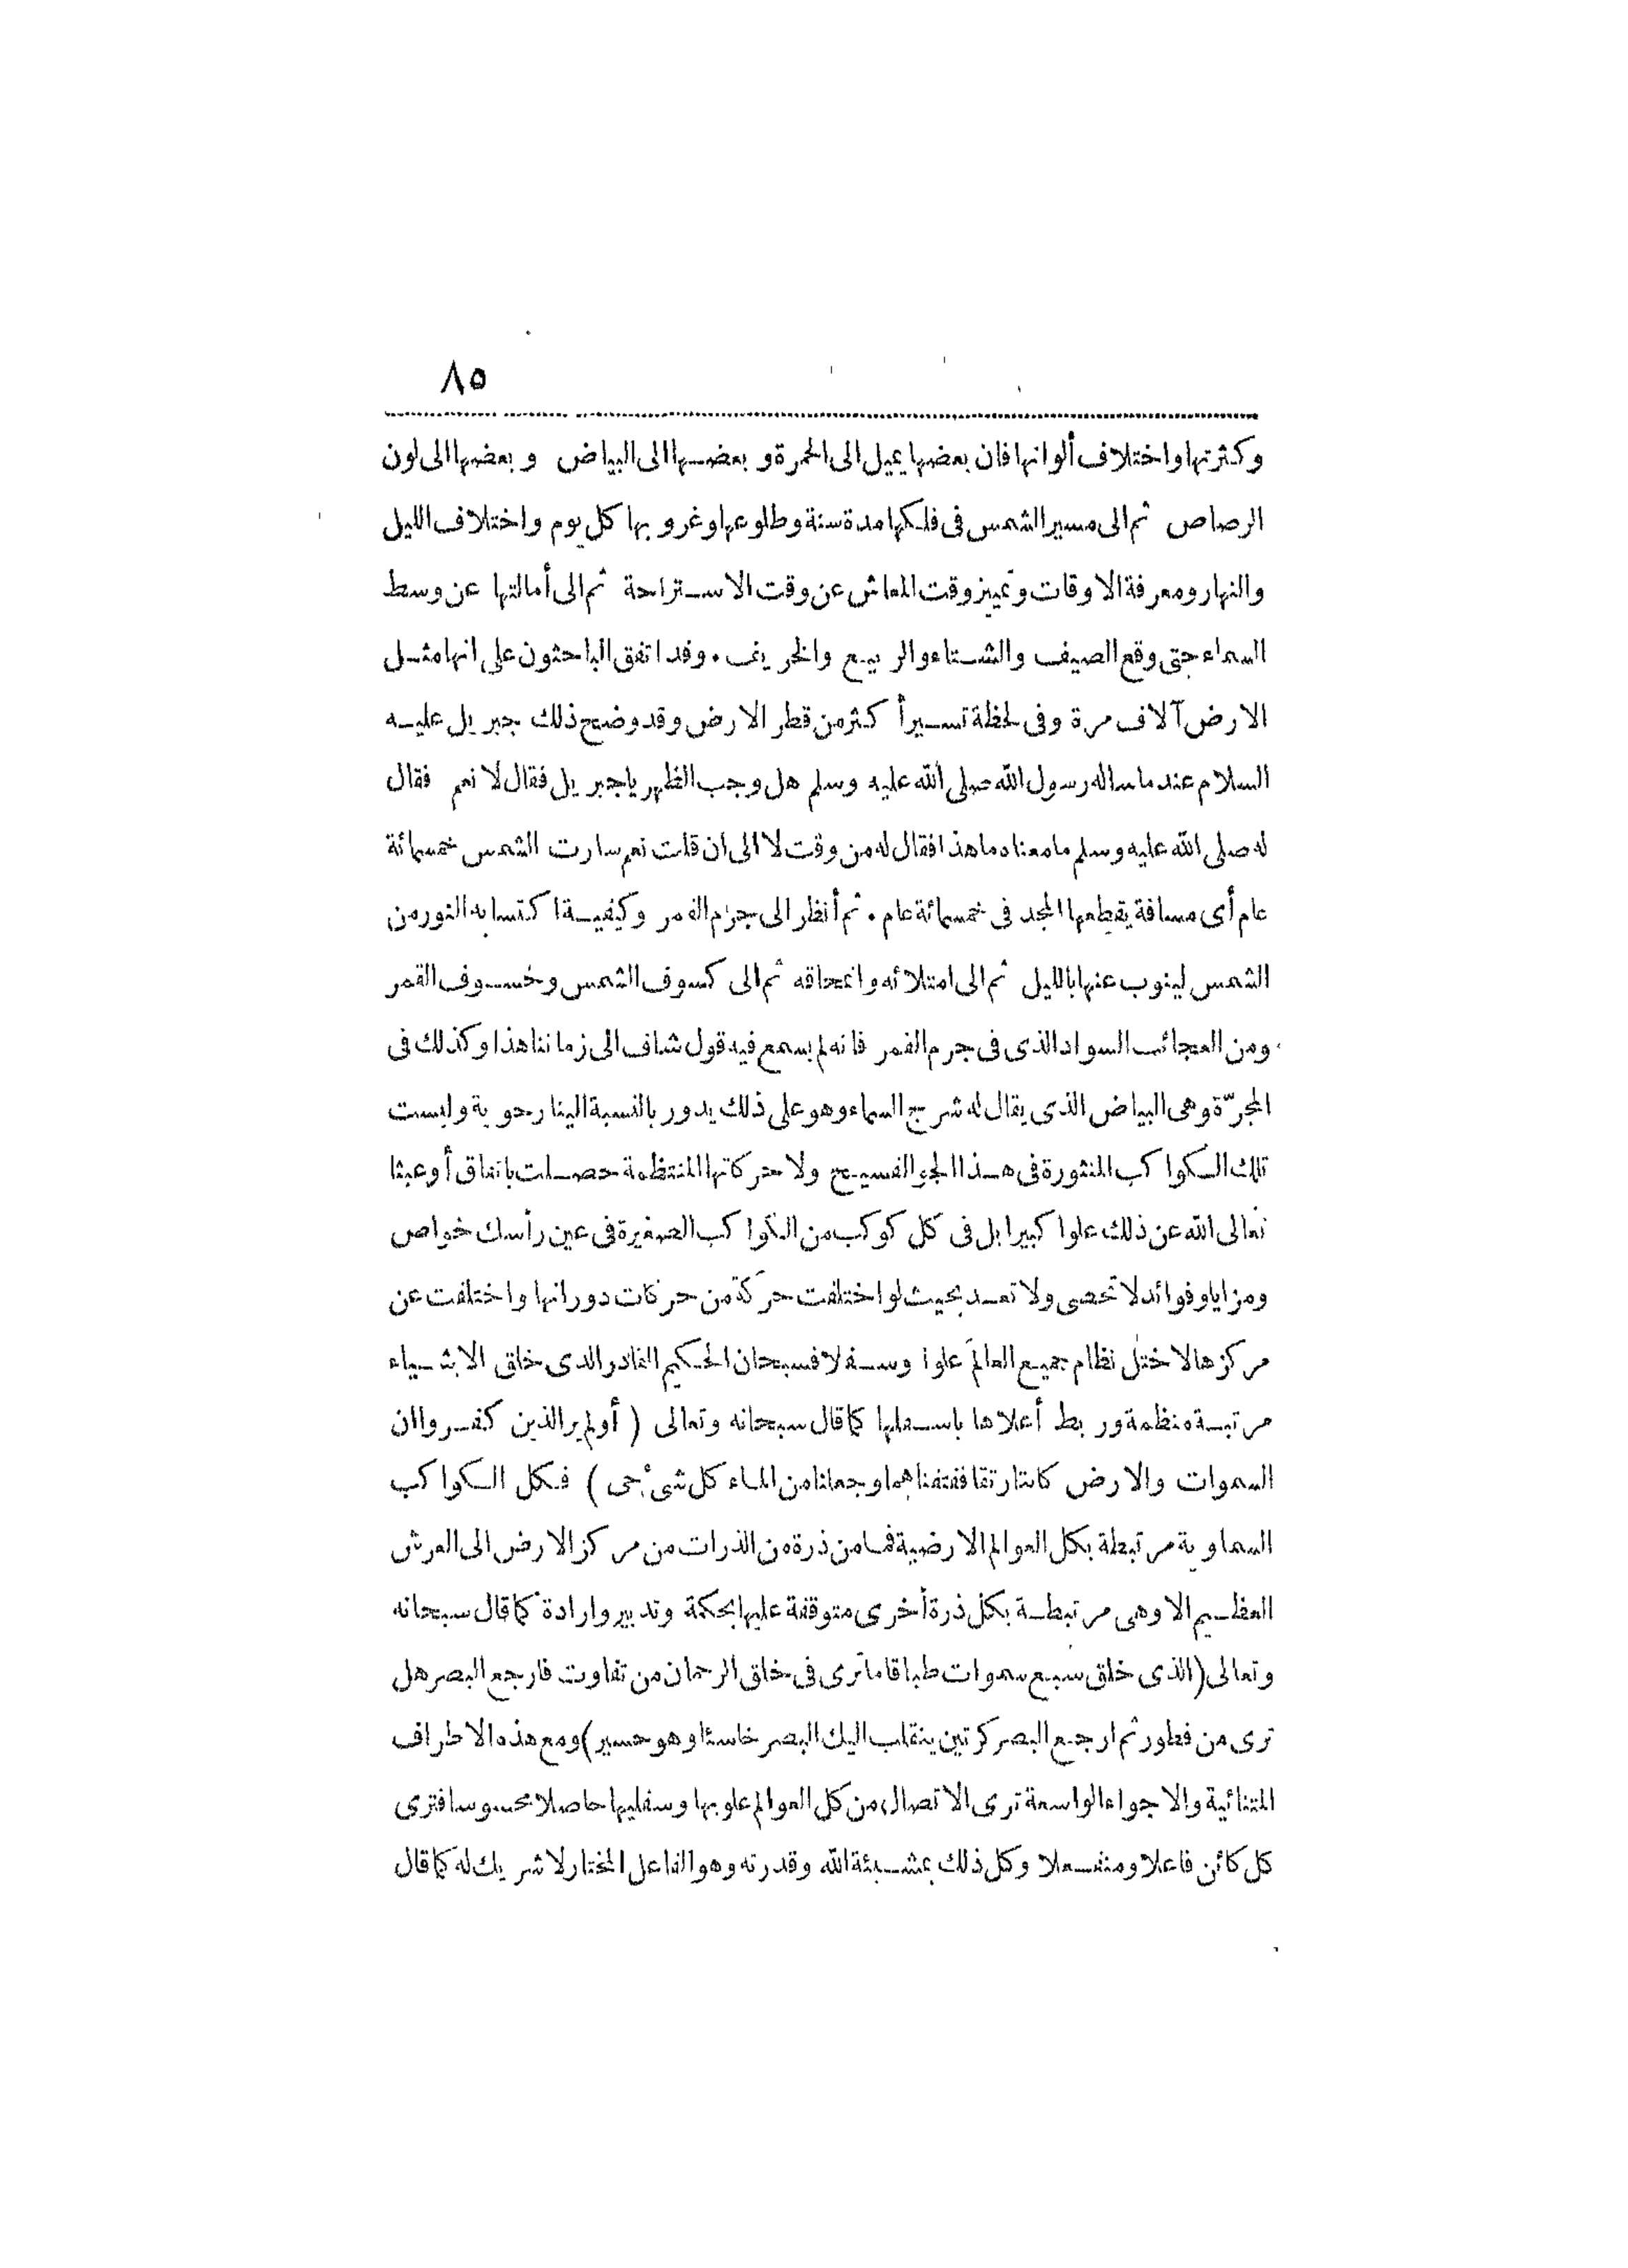 ٨٥
وكثرتها واختلاف ألوانها فان بعضها يميل الى الحمرة و بعضها الى البياض و بعضها الى لون
الرصاص ثم الى مسير الشمس فى فلكها مدة سنة وطلوعها وغروبها كل يوم واختلاف الليل
والنهار ومعرفة الاوقات وتمييز وقت المعاش عن وقت الاستراحة ثم الى أمالتها عن وسط
السماء حتى وقع الصيف والشتاء والربيع والخريف . وقد اتفق الباحثون على انها مثل
الارض آلاف مرة وفى لحظة تسير أكثر من قطر الارض وقد وضح ذلك جبريل عليه
السلام عندما ساله رسول الله صلى الله عليه وسلم هل وجب الظهر ياجبريل فقال لا نعم فقال
له صلى الله عليه وسلم ما معناه ما هذا فقال له من وقت لا الى ان قلت نعم سارت الشمس خمسمائة
عام أى مسافة يقطعها المجد فى خمسمائة عام . ثم أنظر الى جرم القمر وكيفية اكتسابه النور من
الشمس لينوب عنها بالليل ثم الى امتلائه وانمحاقه ثم الى كسوف الشمس وخسوف القمر
ومن العجائب السواد الذى فى جرم القمر فانه لم يسمع فيه قول شاف الى زماننا هذا وكذلك فى
المجرّة وهى البياض الذى يقال له شرج السماء وهو على ذلك يدور بالنسبة الينا رحوية وليست
تلك الكواكب المنثورة فى هذا الجو الفسيح ولا حركاتها المنتظمة حصلت باتفاق أوعبثا
تعالى الله عن ذلك علوا كبيرا بل فى كل كوكب من الكواكب الصغيرة فى عين رأسك خواص
ومزايا وفوائد لا تحصى ولا تعد بحيث لو اختلفت حركة من حركات دورانها واختلفت عن
مركزها لاختل نظام جميع العالم علوا وسفلا فسبحان الحكيم القادر الذى خلق الاشياء
مرتبة منظمة وربط أعلاها باسفلها كما قال سبحانه وتعالى ( أولم ير الذين كفروا ان
السموات والارض كانتا رتقا ففتقناهما وجعلنا من الماء كل شئ حى ) فكل الكواكب
السماوية مرتبطة بكل العوالم الارضية فما من ذرة من الذرات من مركز الارض الى العرش
العظيم الا وهى مرتبطة بكل ذرة أخرى متوقفة عليها بحكمة وتدبير وارادة كما قال سبحانه
وتعالى (الذى خلق سبع سموات طباقا ما ترى فى خلق الرحمان من تفاوت فارجع البصر هل
ترى من فطور ثم ارجع البصر كرتين ينقلب اليك البصر خاسئا وهو حسير) ومع هذه الاطراف
المتنائية والاجواء الواسعة ترى الاتصال من كل العوالم علويها وسفليها حاصلا محسوسا فترى
كل كائن فاعلا ومنفعلا وكل ذلك بمشيئة الله وقدرته وهو الفاعل المختار لا شريك له كما قال